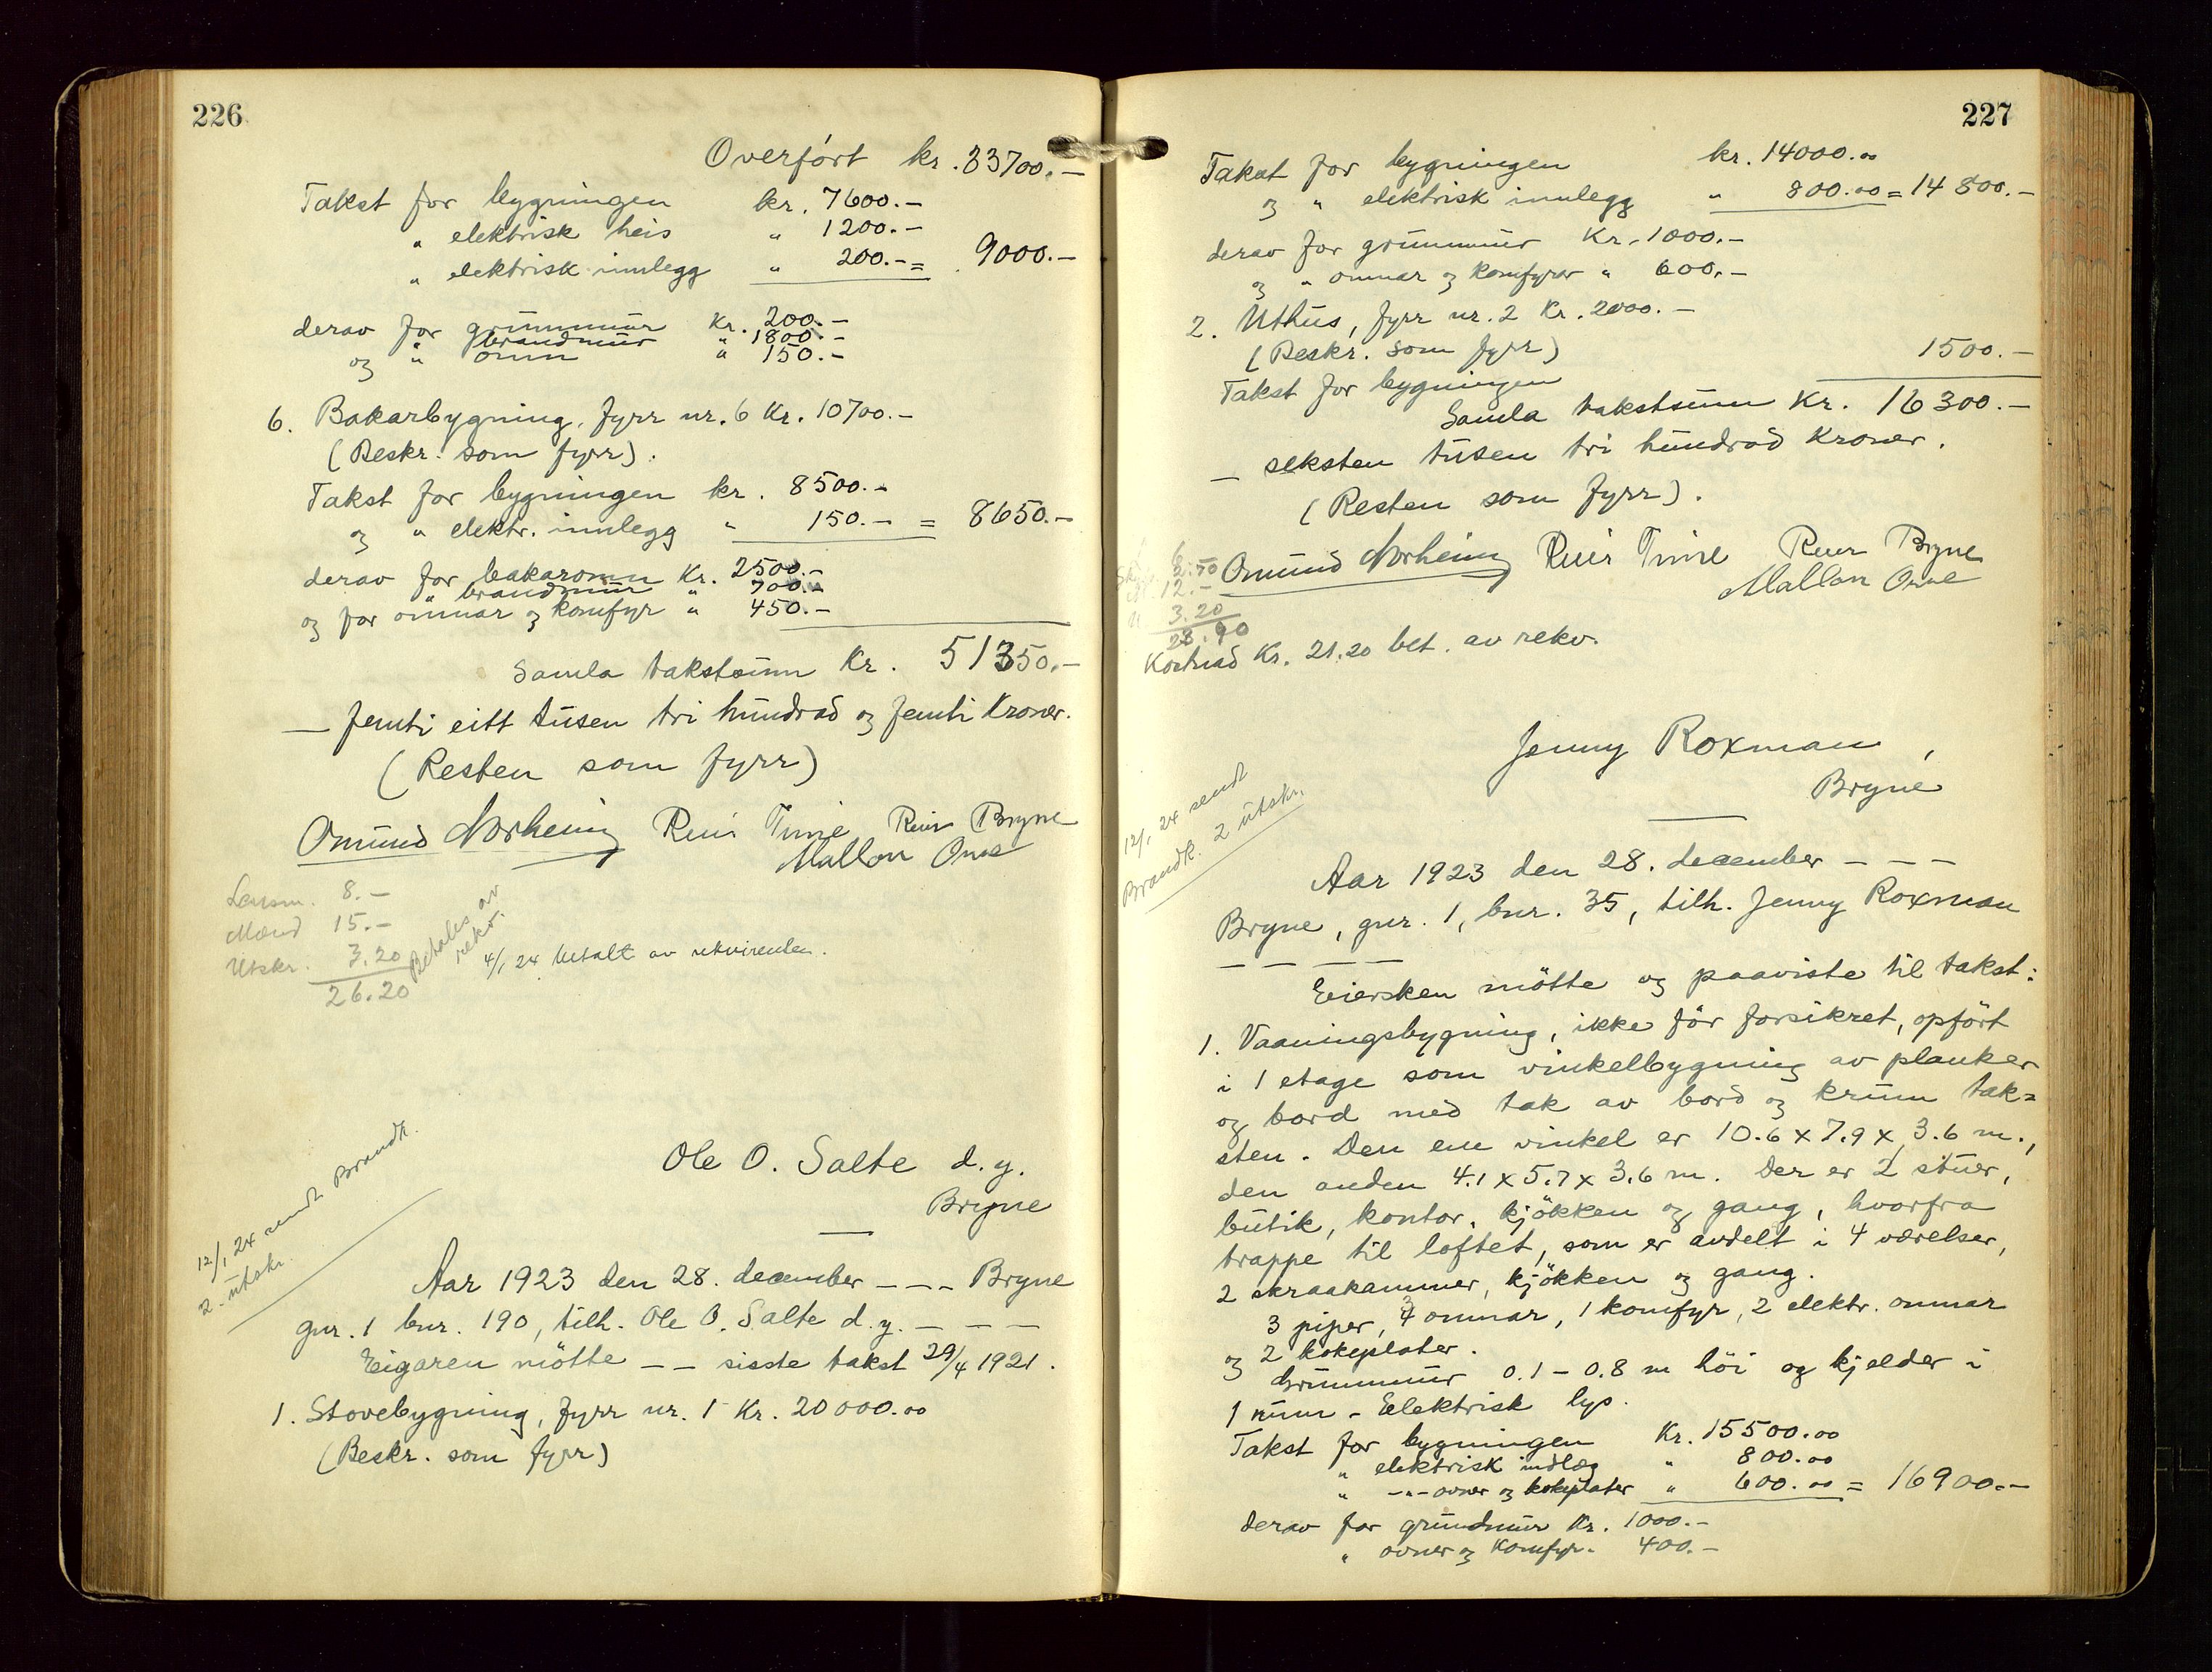 226
Overfört kr. 33700.-
Takst for bygningen kr. 7600.-
" elektrisk heis " 1200.-
" elektrisk innlegg " 200.- = 9000.-
derav for grunnmur Kr. 200.-
" brandmur " 1800.-
og " omn " 150.-
6. Bakarbygning, fyrr nr. 6 Kr. 10700.-
(Beskr. som fyrr).
Takst for bygningen kr. 8500.-
og " elektr. innlegg " 150.- = 8650.-
derav for bakaromn Kr. 2500.-
" brandmur " 700.-
og for omnar og komfyr " 450.-
Samla takstsum Kr. 51350.-
— femti eitt tusen tri hundrad og femti Kroner.
(Resten som fyrr)
Omund Norheim Reier Time Reier Bryne
Mallon Ome
Lensm. 8.-
Mænd 15.-
Utskr. 3.20
26.20
Betales av
rekv.
4/1 24 betalt av rekvirenten.
12/1 24 sendt Brandk.
2 utskr.
Ole O. Salte d.y.
Bryne
Aar 1923 den 28. december - - - Bryne
gnr. 1 bnr. 190, tilh. Ole O. Salte d.y. - - -
Eigaren mötte - - sisste takst 29/4 1921.
1. Stovebygning, fyrr nr. 1 Kr. 20000.00
(Beskr. som fyrr)
227
Takst for bygningen kr. 14000.00
og " elektrisk innlegg " 800.00 = 14800.-
derav for grunnmur Kr. 1000.-
og " omnar og komfyrer " 600.-
2. Uthus, fyrr nr. 2 Kr. 2000.-
(Beskr. som fyrr)
Takst for bygningen 1500.-
Samla takstsum Kr. 16300.-
— seksten tusen tri hundrad Kroner.
(Resten som fyrr).
Omund Norheim Reier Time Reier Bryne
Mallon Ome
12.-
3.20
28.90
Kostnad Kr. 21.20 bet. av rekv.
12/1 24 sendt
Brandk. 2 utskr.
Jenny Roxman,
Bryne
Aar 1923 den 28. december - - -
Bryne, gnr. 1, bnr. 35, tilh. Jenny Roxman
- - - -
Eiersken mötte og paaviste til takst:
1. Vaaningsbygning, ikke för forsikret, opfört
i 1 etage som vinkelbygning av planker
og bord med tak av bord og krum tak=
sten. Den ene vinkel er 10.6 x 7.9 x 3.6 m.,
den anden 4.1 x 5.7 x 3.6 m. Der er 2 stuer,
butik, kontor, kjökken og gang, hvorfra
trappe til loftet, som er avdelt i 4 værelser,
2 skraakammer, kjökken og gang.
3 piper, 3 omnar, 1 komfyr, 2 elektr. omnar
og 2 kokeplater.
Grunnmur 0.1 - 0.8 m höi og kjelder i
1 rum - Elektrisk lys.
Takst for bygningen Kr. 15500.00
" elektrisk indlæg " 800.00
" -"- ovner og kokeplater " 600.00 = 16900.-
derav for grundmur Kr. 1000.-
" ovner og komfyr " 400.-